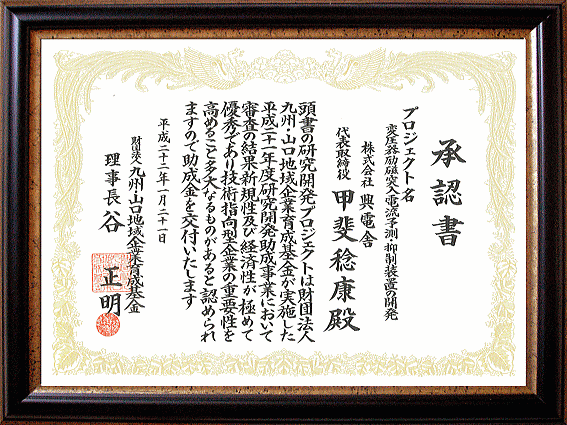 承認書
プロジェクト名
変圧器励磁突入電流予測・抑制装置の開発
株式会社 興電舎
代表取締役 甲斐稔康殿
頭書の研究開発プロジェクトは財団法人
九州・山口地域企業育成基金が実施した
平成二十一年度研究開発助成事業において
審査の結果新規性及び経済性が極めて
優秀であり技術指向型企業の重要性を
高めること多大なるものがあると認められ
ますので助成金を交付いたします
平成二十二年一月二十一日
財団法人 九州・山口地域企業育成基金
理事長 谷 正明